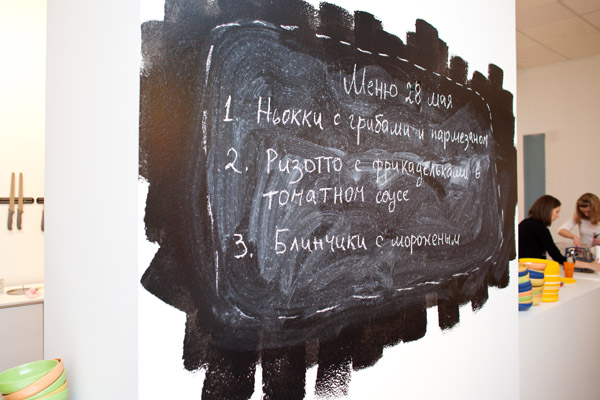 Меню 28 мая
1. Ньокки с грибами и пармезаном
2. Ризотто с фрикадельками в
томатном соусе
3. Блинчики с мороженым